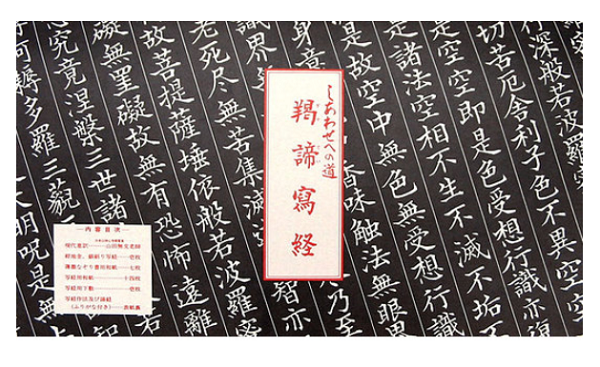 しあわせへの道
羯諦寫経
行深般若波羅
切苦厄舎利子色不
是空空即是色受想行識亦復
是諸法空相不生不滅不垢不
是故空中無色無受想行識
身意
香味触法無眼界
乃至
識界
智亦
老死尽無苦集滅
故菩提薩埵依般若波羅
礙無罣礙故無有恐怖遠離
究竟涅槃三世諸
耨多羅三藐
大明呪是
―内容目次―
現代意訳――山田無文老師
写経用和紙――十四枚
写経用下敷――壱枚
写経作法及び論経
(ふりがな付き)――表紙裏